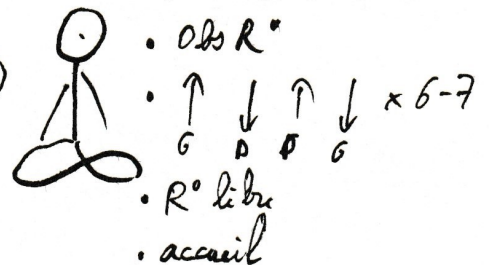 • Obs R°
• ↑ ↓ ↑ ↓ × 6-7
G D D G
• R° libre
• accueil